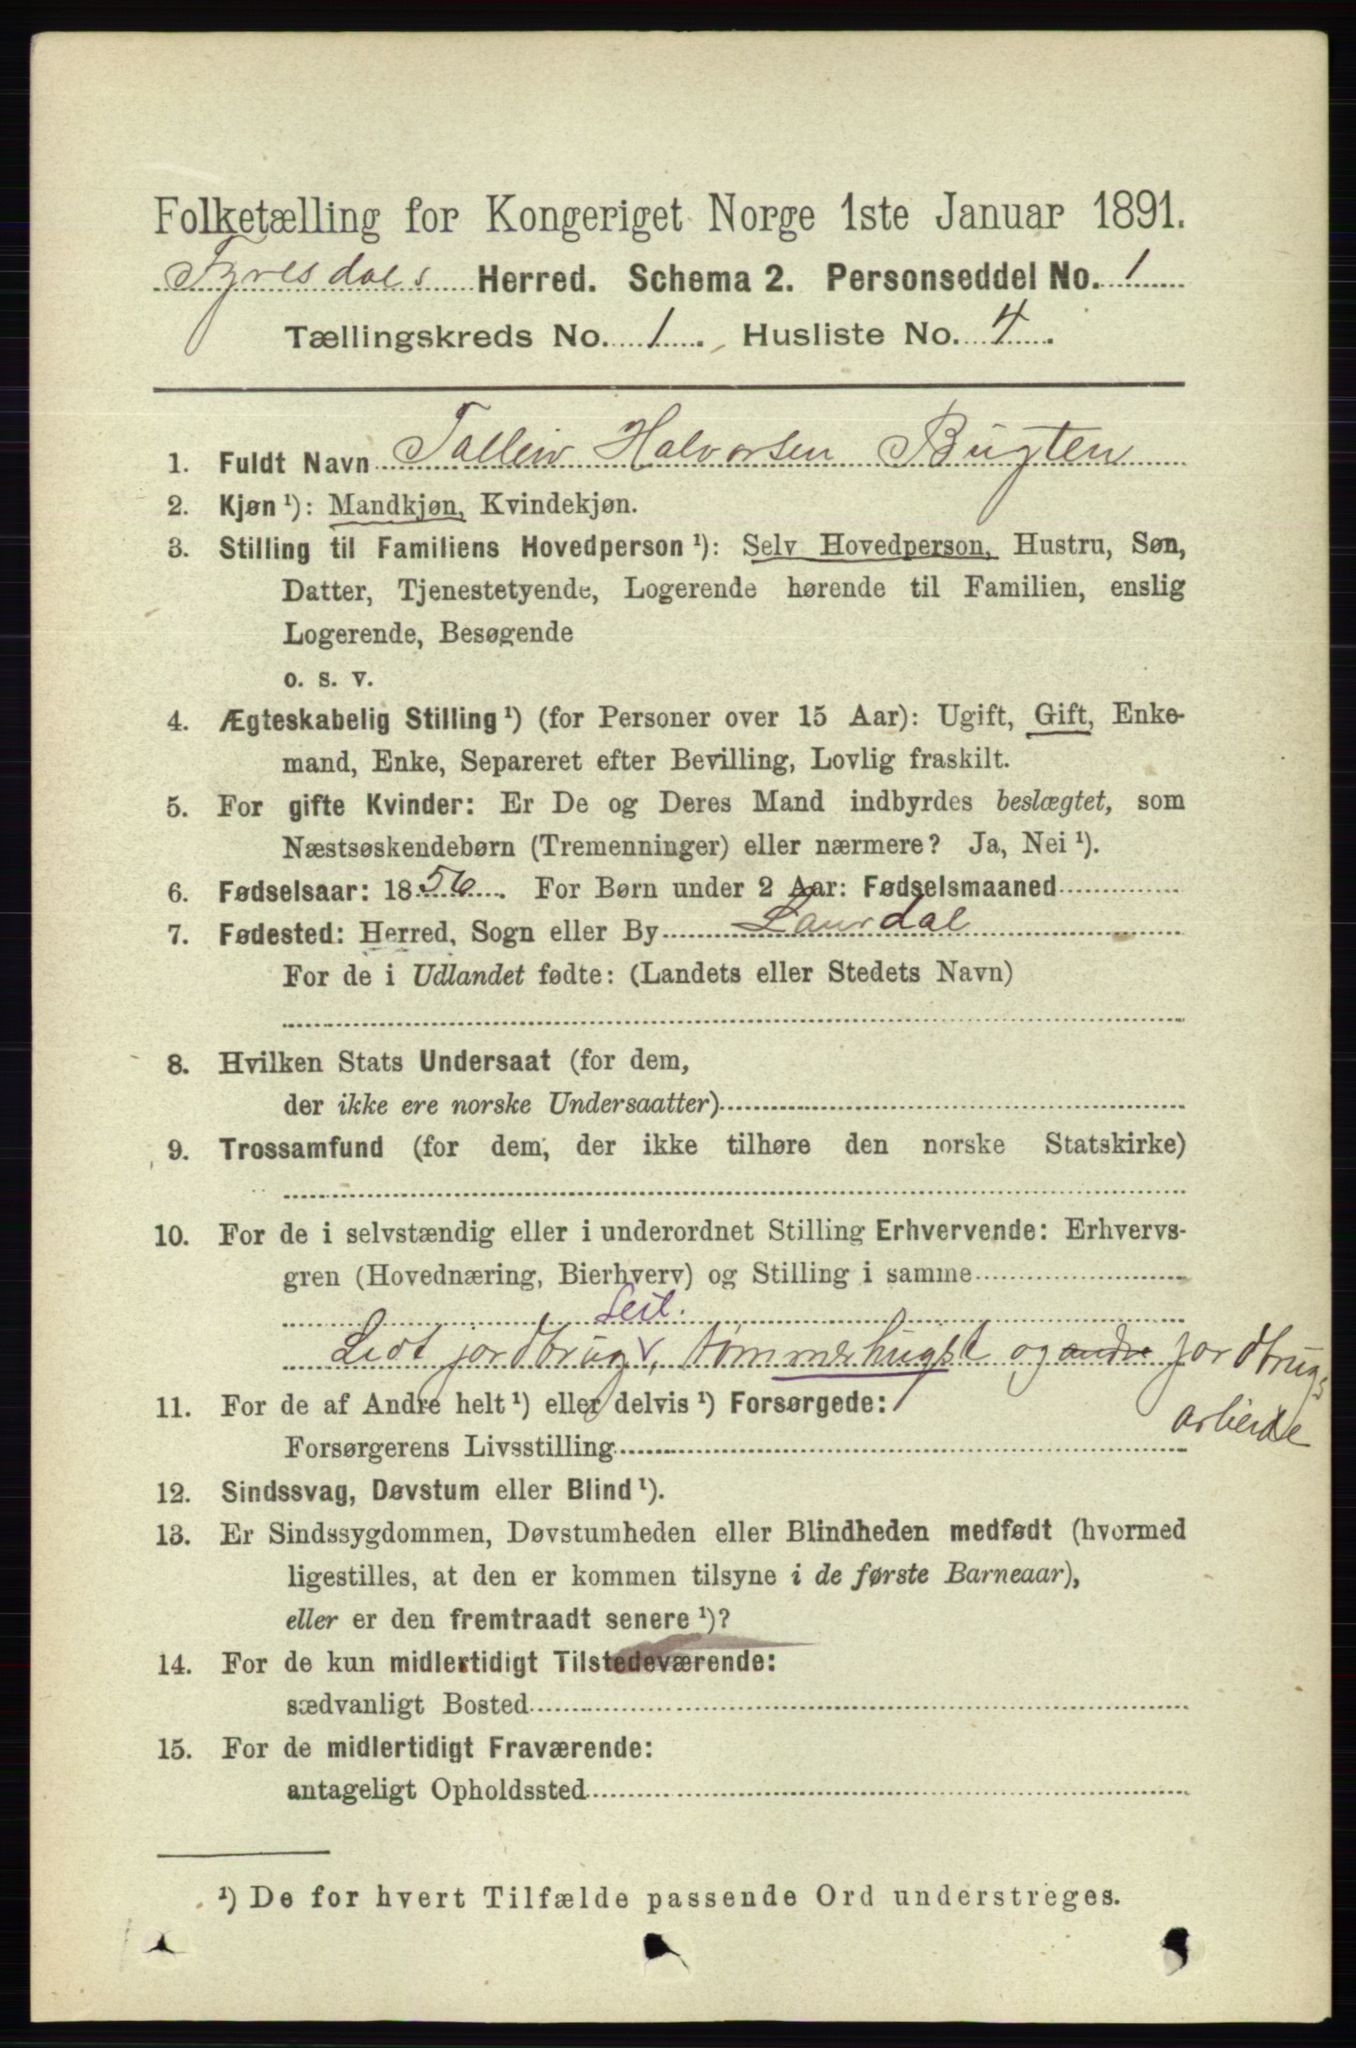 Folketælling for Kongeriget Norge 1ste Januar 1891.
Tyresdals Herred. Schema 2. Personseddel No. 1
Tællingskreds No. 1. Husliste No. 4.
1. Fuldt Navn Talleiv Halvorsen Bugten
2. Kjøn ¹): Mandkjøn, Kvindekjøn.
3. Stilling til Familiens Hovedperson ¹): Selv Hovedperson, Hustru, Søn,
Datter, Tjenestetyende, Logerende hørende til Familien, enslig
Logerende, Besøgende
o. s. v.
4. Ægteskabelig Stilling ¹) (for Personer over 15 Aar): Ugift, Gift, Enke-
mand, Enke, Separeret efter Bevilling, Lovlig fraskilt.
5. For gifte Kvinder: Er De og Deres Mand indbyrdes beslægtet, som
Næstsøskendebørn (Tremenninger) eller nærmere? Ja, Nei ¹).
6. Fødselsaar: 1856. For Børn under 2 Aar: Fødselsmaaned
7. Fødested: Herred, Sogn eller By Laurdal
For de i Udlandet fødte: (Landets eller Stedets Navn)
8. Hvilken Stats Undersaat (for dem,
der ikke ere norske Undersaatter)
9. Trossamfund (for dem, der ikke tilhøre den norske Statskirke)
10. For de i selvstændig eller i underordnet Stilling Erhvervende: Erhvervs-
gren (Hovednæring, Bierhverv) og Stilling i samme
Leil.
Lidt jordbrug, tømmerhugst og andre jordbrugs
arbeide
11. For de af Andre helt ¹) eller delvis ¹) Forsørgede:
Forsørgerens Livsstilling
12. Sindssvag, Døvstum eller Blind ¹).
13. Er Sindssygdommen, Døvstumheden eller Blindheden medfødt (hvormed
ligestilles, at den er kommen tilsyne i de første Barneaar),
eller er den fremtraadt senere ¹)?
14. For de kun midlertidigt Tilstedeværende:
sædvanligt Bosted
15. For de midlertidigt Fraværende:
antageligt Opholdssted
¹) De for hvert Tilfælde passende Ord understreges.